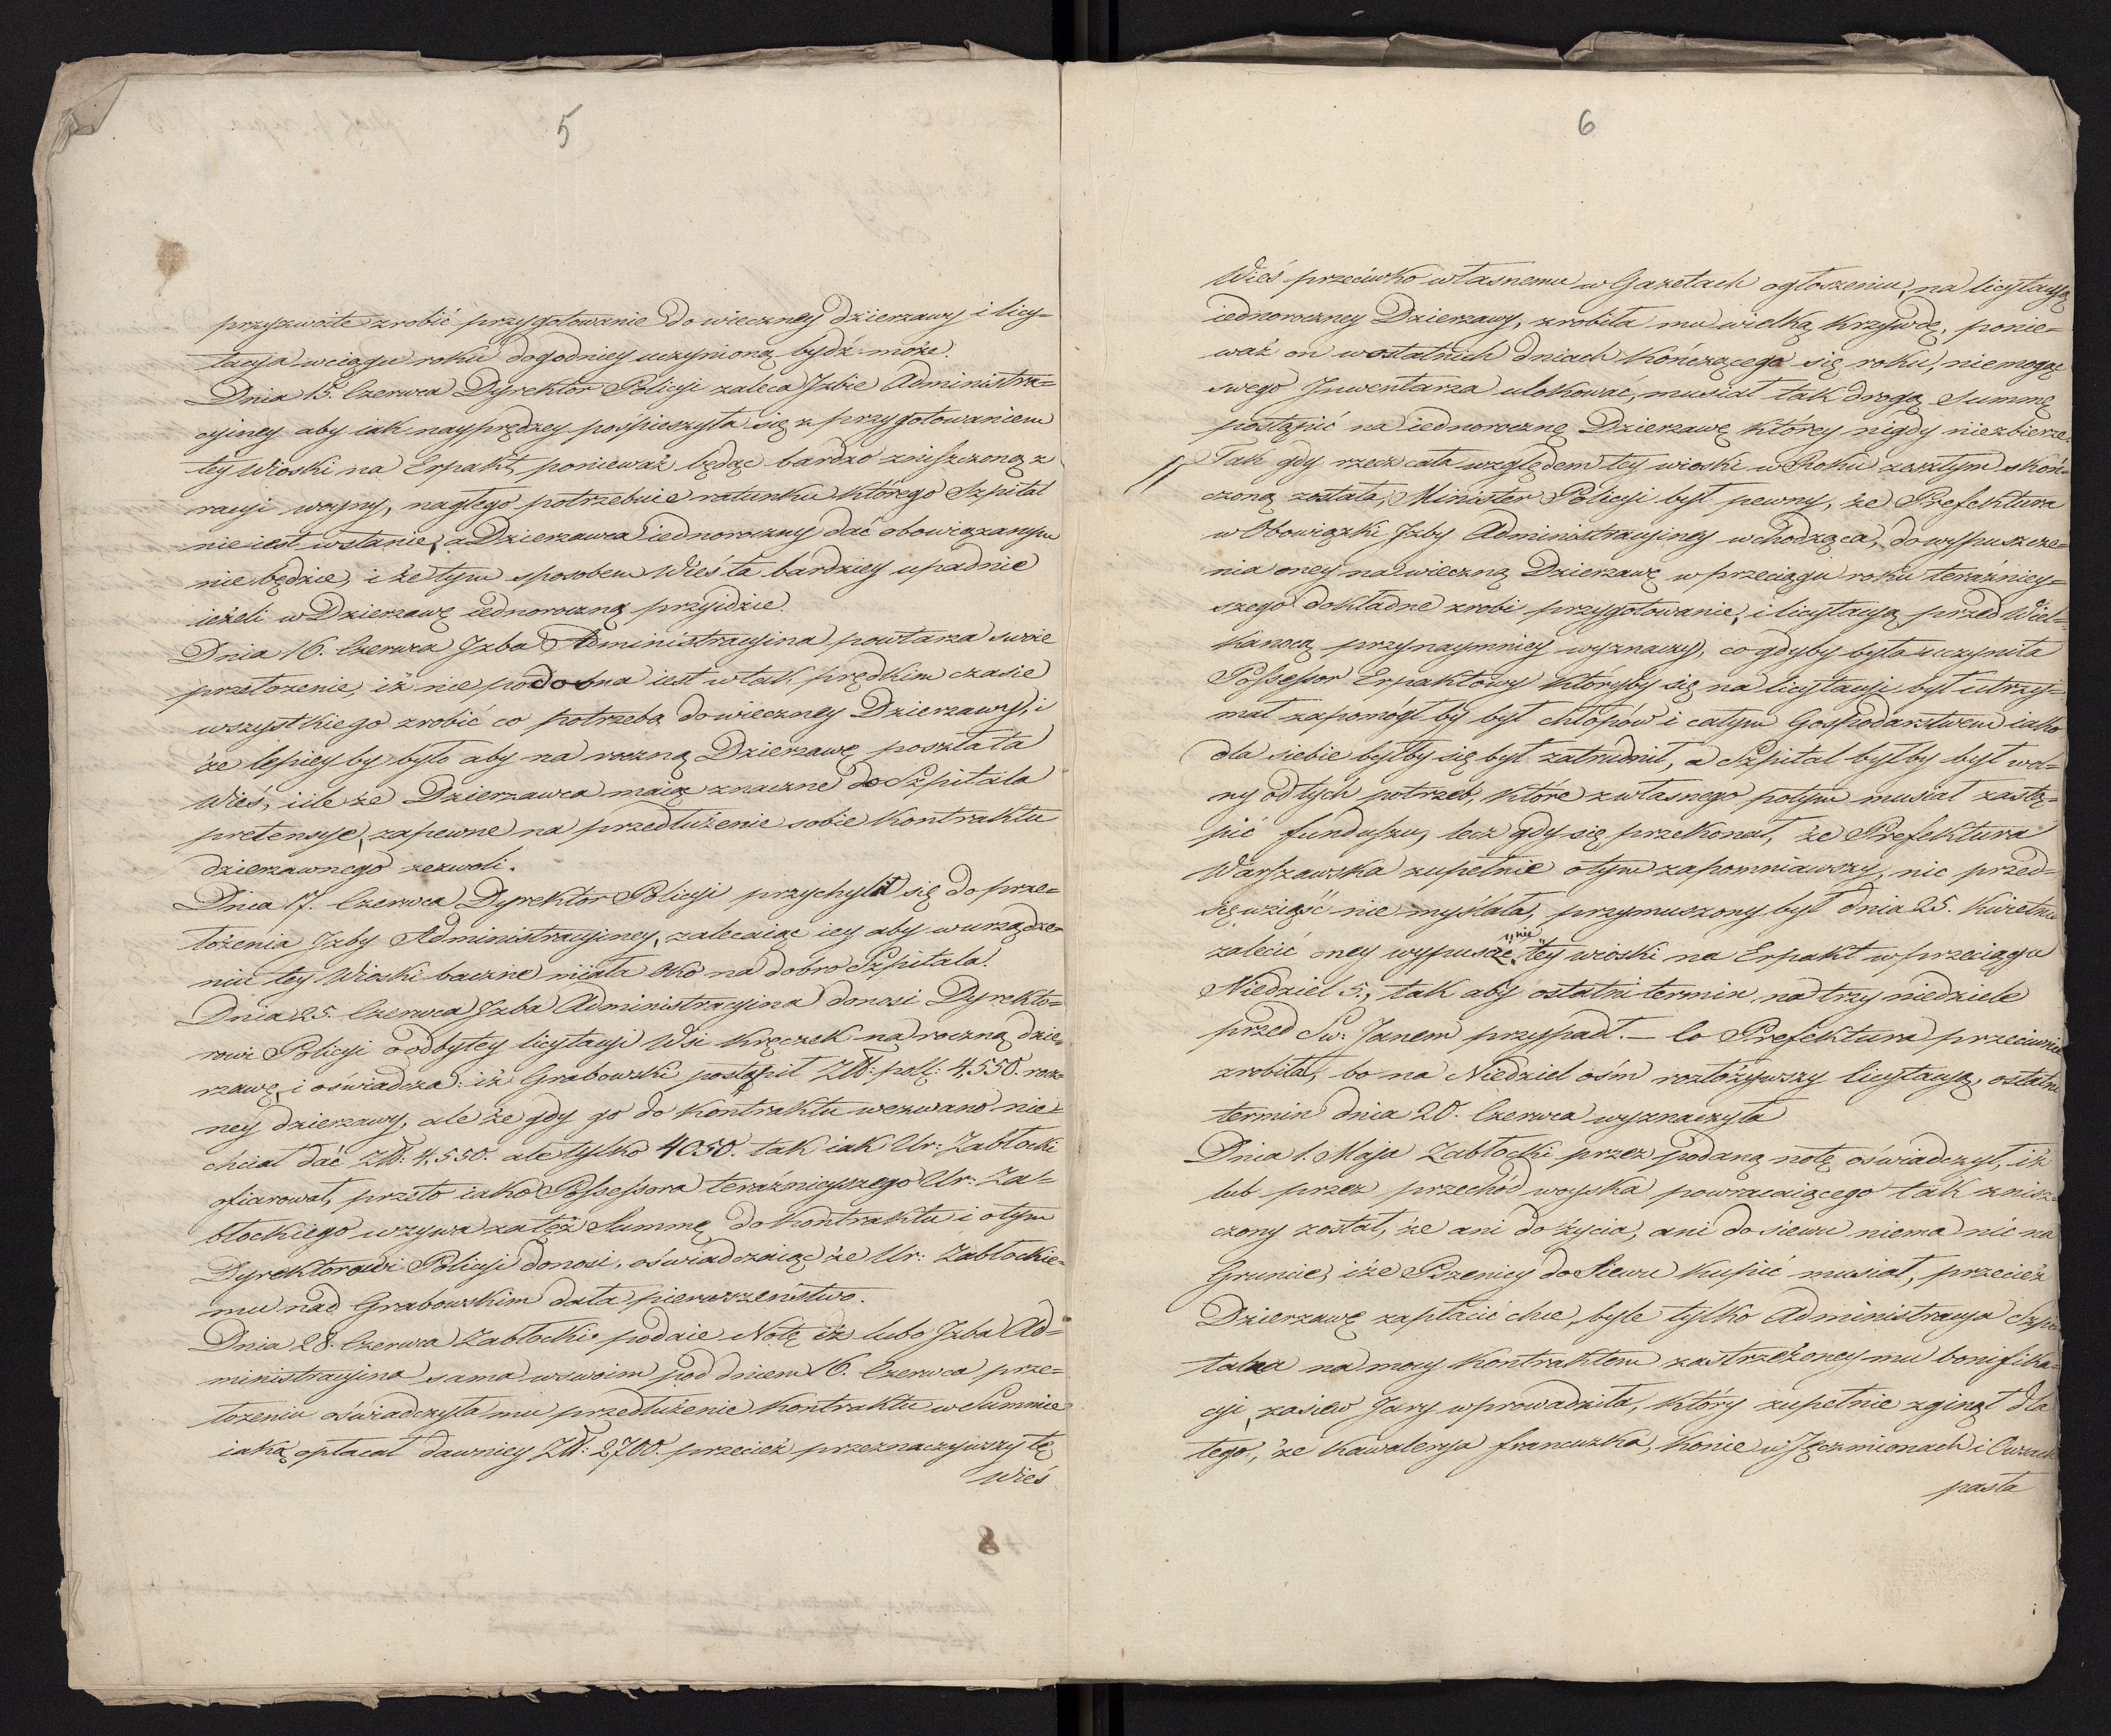 5
przyzwoite zrobić przygotowanie do wieczney dzierzawy i licy=
tacya wciągu roku dogodniey uczynioną bydź może.
Dnia 15. Czerwca Dyrektor Policyi zaleca Izbie Administra=
cyiney aby iak nayprędzey pośpieszyła się z przygotowaniem
tey Wioski na Erpakt, ponieważ będąc bardzo zniszczoną z
racyi woyny, nagłego potrzebuie ratunku którego Szpital
nie iest wstanie, a Dzierzawca iednoroczny dać obowiązanym
nie będzie, i że tym sposobem Wieś ta bardziey upadnie
ieżeli w Dzierzawę iednoroczną przyidzie.
Dnia 16. Czerwca Izba Administracyina powtarza swoie
przełożenie, iż nie podobna iest w tak prędkim czasie
wszystkiego zrobić co potrzeba do wieczney Dzierzawy, i
że lepiey by było aby na roczną Dzierzawę poszłała
Wieś, ile że Dzierzawca maiąc znaczne do Szpitala
pretensye, zapewne na przedłużenie sobie Kontraktu
dzierzawnego zezwoli.
Dnia 17. Czerwca Dyrektor Policyi przychylił się do prze=
łożenia Izby Administracyiney, zalecaiąc iey aby w urządze=
niu tey Wioski baczne miała Oko na dobro Szpitala.
Dnia 25. Czerwca Izba Administracyina donosi Dyrekto=
rowi Policyi o odbytey licytacyi Wsi Kręczek na roczną dzie=
rzawę, i oświadcza: iż Grabowski postąpił Złł: poll: 4,550. rocz
ney dzierzawy, ale że gdy go do Kontraktu wezwano nie=
chciał dać Złł: 4,550. ale tylko 4050. tak iak Ur: Zabłocki
ofiarował, przeto iako Possessora teraźnieyszego Ur: Za=
błockiego wzywa za też Summę do Kontraktu i o tym
Dyrektorowi Policyi donosi, oświadczaiąc że Ur: Zabłockie=
mu nad Grabowskim dała pierwszeństwo.
Dnia 28. Czerwca Zabłocki podaie Notę iż lubo Izba Ad=
ministracyina sama w swoim pod dniem 16. Czerwca prze=
łożeniu oświadczyła mu przedłużenie Kontraktu w Summie
iaką opłacał dawniey Złł: 2,700. przecież przeznaczywszy tę
Wieś
8
6
Wieś przeciwko własnemu w Gazetach ogłoszeniu, na licytacyą
iednoroczney Dzierzawy, zrobiła mu wielką Krzywdę, ponie=
waż on w ostatnich dniach Kończącego się roku, niemogąc
swego Inwentarza ulokować, musiał tak drogą Summę
postąpić na iednoroczną Dzierzawę którey nigdy niezbierze.
Tak gdy rzecz cała względem tey wioski w Roku zeszłym skoń=
czoną została, Minister Policyi był pewny, że Prefektura
w Obowiązki Izby Administracyiney wchodząca, do wypuszcze=
nia oney na wieczną Dzierzawę w przeciągu roku teraźniey=
szego dokładne zrobi przygotowanie, i licytacyą przed Wiel=
kanocą przynaymniey wyznaczy, co gdyby była uczyniła
Possessor Erpaktowy któryby się na licytacyi był utrzy=
mał zapomógł by był chłopów i całym Gospodarstwem iako
dla siebie byłby się był zatrudnił, a Szpital byłby był wol=
ny od tych potrzeb, które z własnego potym musiał zastą=
pić funduszu, lecz gdy się przekonał, że Prefektura
Warszawska zupełnie o tym zapomniawszy, nic przed=
się wziąść nie myślała, przymuszony był dnia 25. Kwietnia
zalecić oney wypuscze„nie„ tey wioski na Erpakt w przeciągu
Niedziel 5., tak aby ostatni termin na trzy niedziele
przed Sw: Janem przypadł. — Co Prefektura przeciwnie
zrobiła, bo na Niedziel ośm rozłożywszy licytacyą, ostatni
termin dnia 20. Czerwca wyznaczyła
Dnia 1. Maja Zabłocki przez podaną notę oświadczył, iż
lub przez przechód woyska powracaiącego tak znisz=
czony został, że ani do życia, ani do siewu niema nic na
Gruncie, i że Pszenicy do Siewu Kupić musiał, przecież
Dzierzawę zapłacić chce, byle tylko Administracya Szpi
talna na mocy Kontraktem zastrzeżoney mu bonifika=
cyi, zasiew Jary wprowadziła, który zupełnie zginął dla
tego, że Kawalerya francuzka, Konie w Jęczmionach i Owsach
pasła